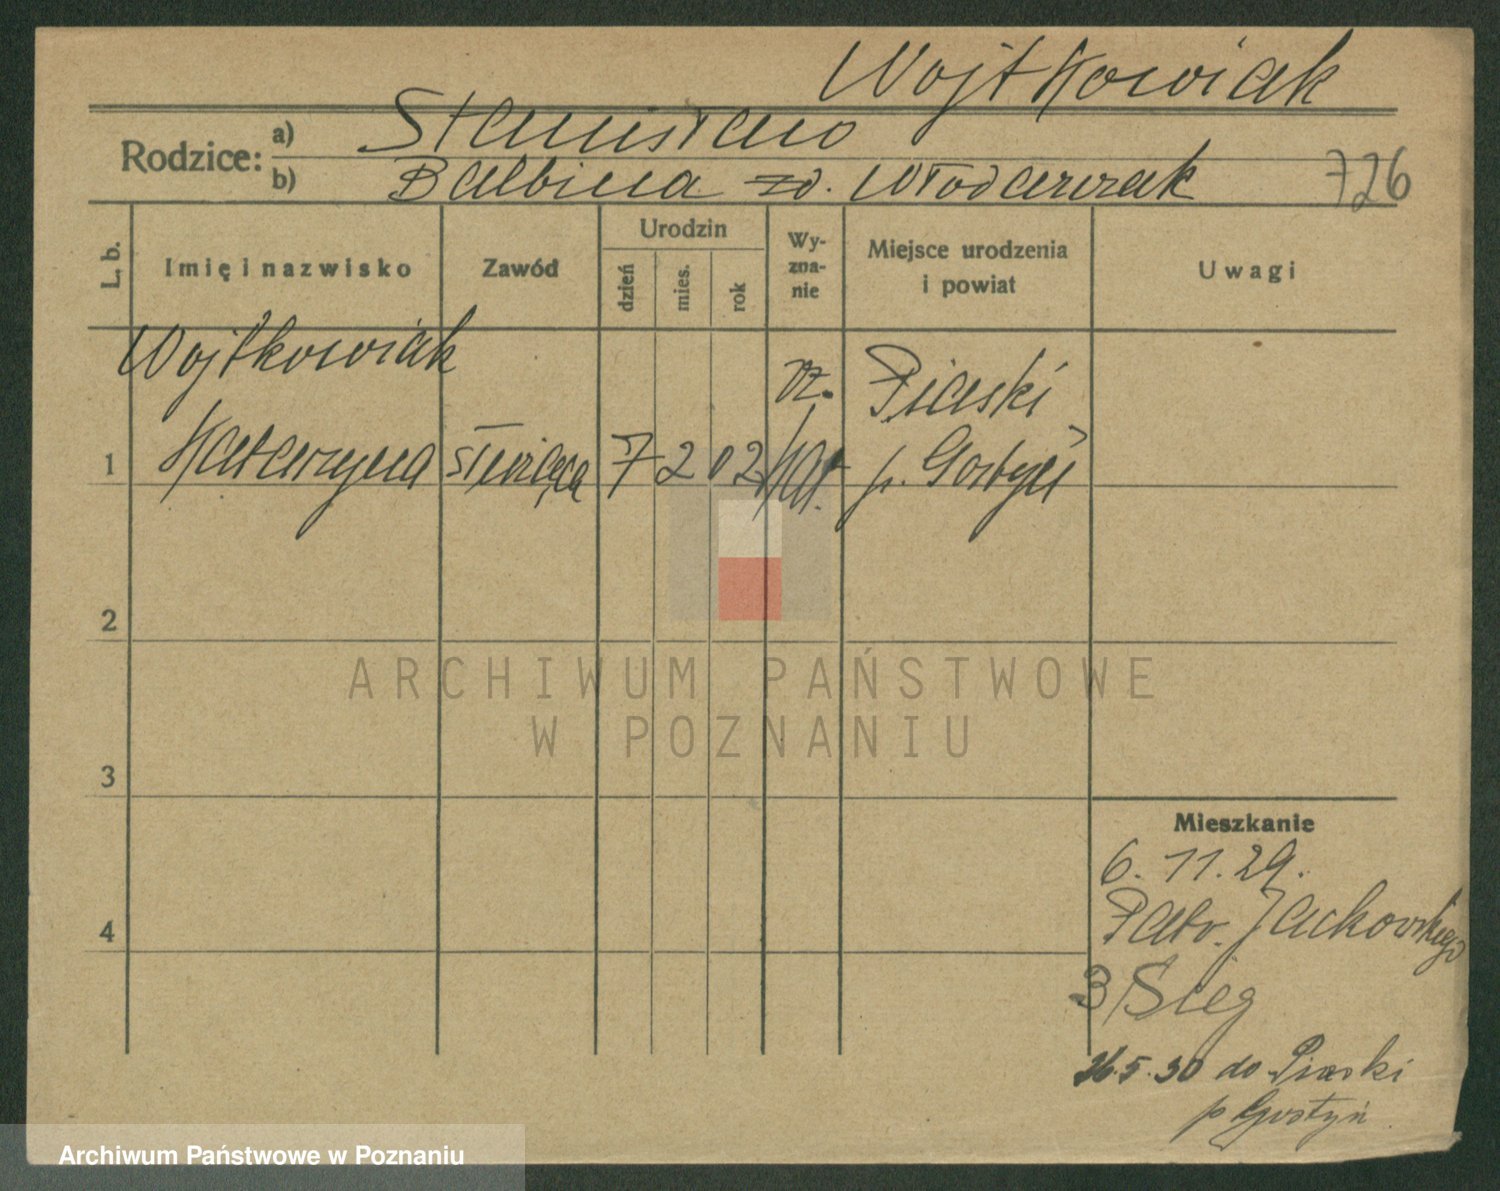 Wojtkowiak
Rodzice: a) Stanisław
b) Balbina zd. Włodarczak 726
L. b. Imię i nazwisko Zawód Urodzin dzień mies. rok Wy-zna-nie Miejsce urodzenia i powiat Uwagi
Wojtkowiak rz. Piaski
1 Katarzyna służąca 7 2 02 kat. p. Gostyń
2
ARCHIWUM PAŃSTWOWE
W POZNANIU
3
Mieszkanie
6. 11. 29.
4 Jackowskiego
3/Sieg
26.5.30 do Piaski
p Gostyń
Archiwum Państwowe w Poznaniu